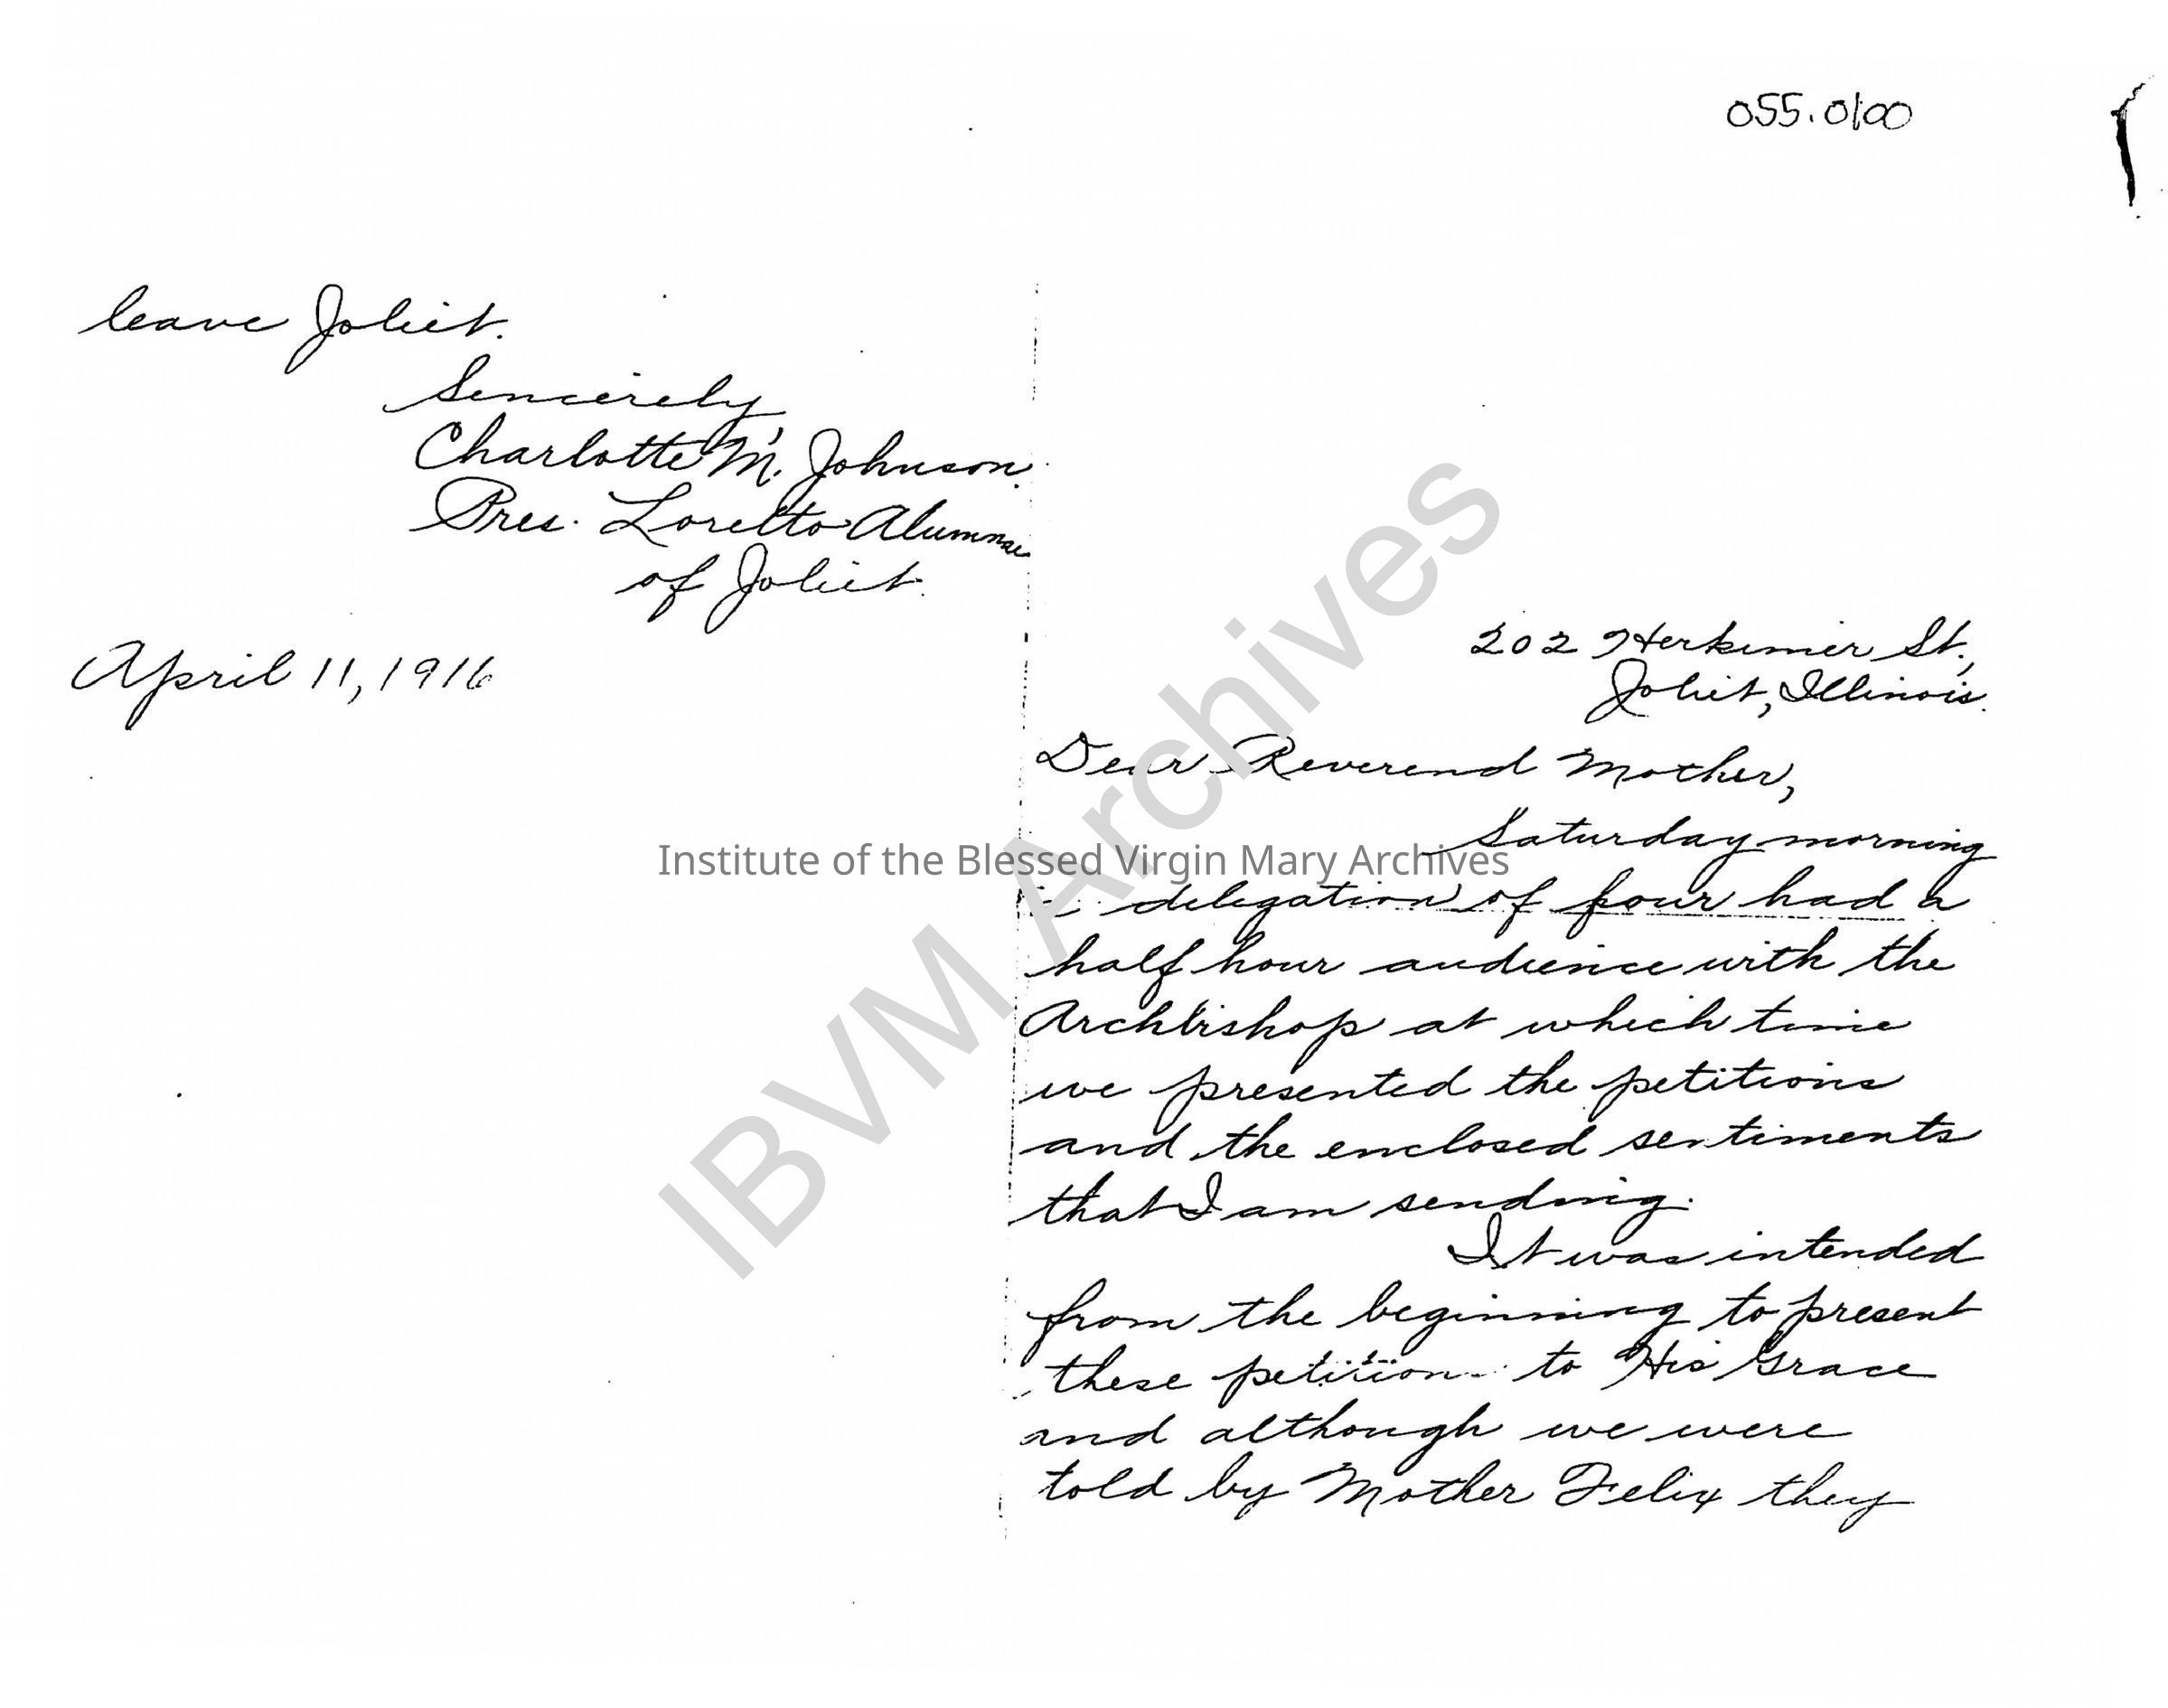 055.0100
leave Joliet.
Sincerely
Charlotte M. Johnson.
Pres. Loretto Alumnae
of Joliet.
April 11, 1916
202 Herkimer St.,
Joliet, Illinois.
Dear Reverend Mother,
Saturday morning
a delegation of four had a
half hour audience with the
Archbishop at which time
we presented the petitions
and the enclosed sentiments
that I am sending.
It was intended
from the beginning to present
these petition to His Grace
and although we were
told by Mother Felix they
Institute of the Blessed Virgin Mary Archives
IBVM Archives